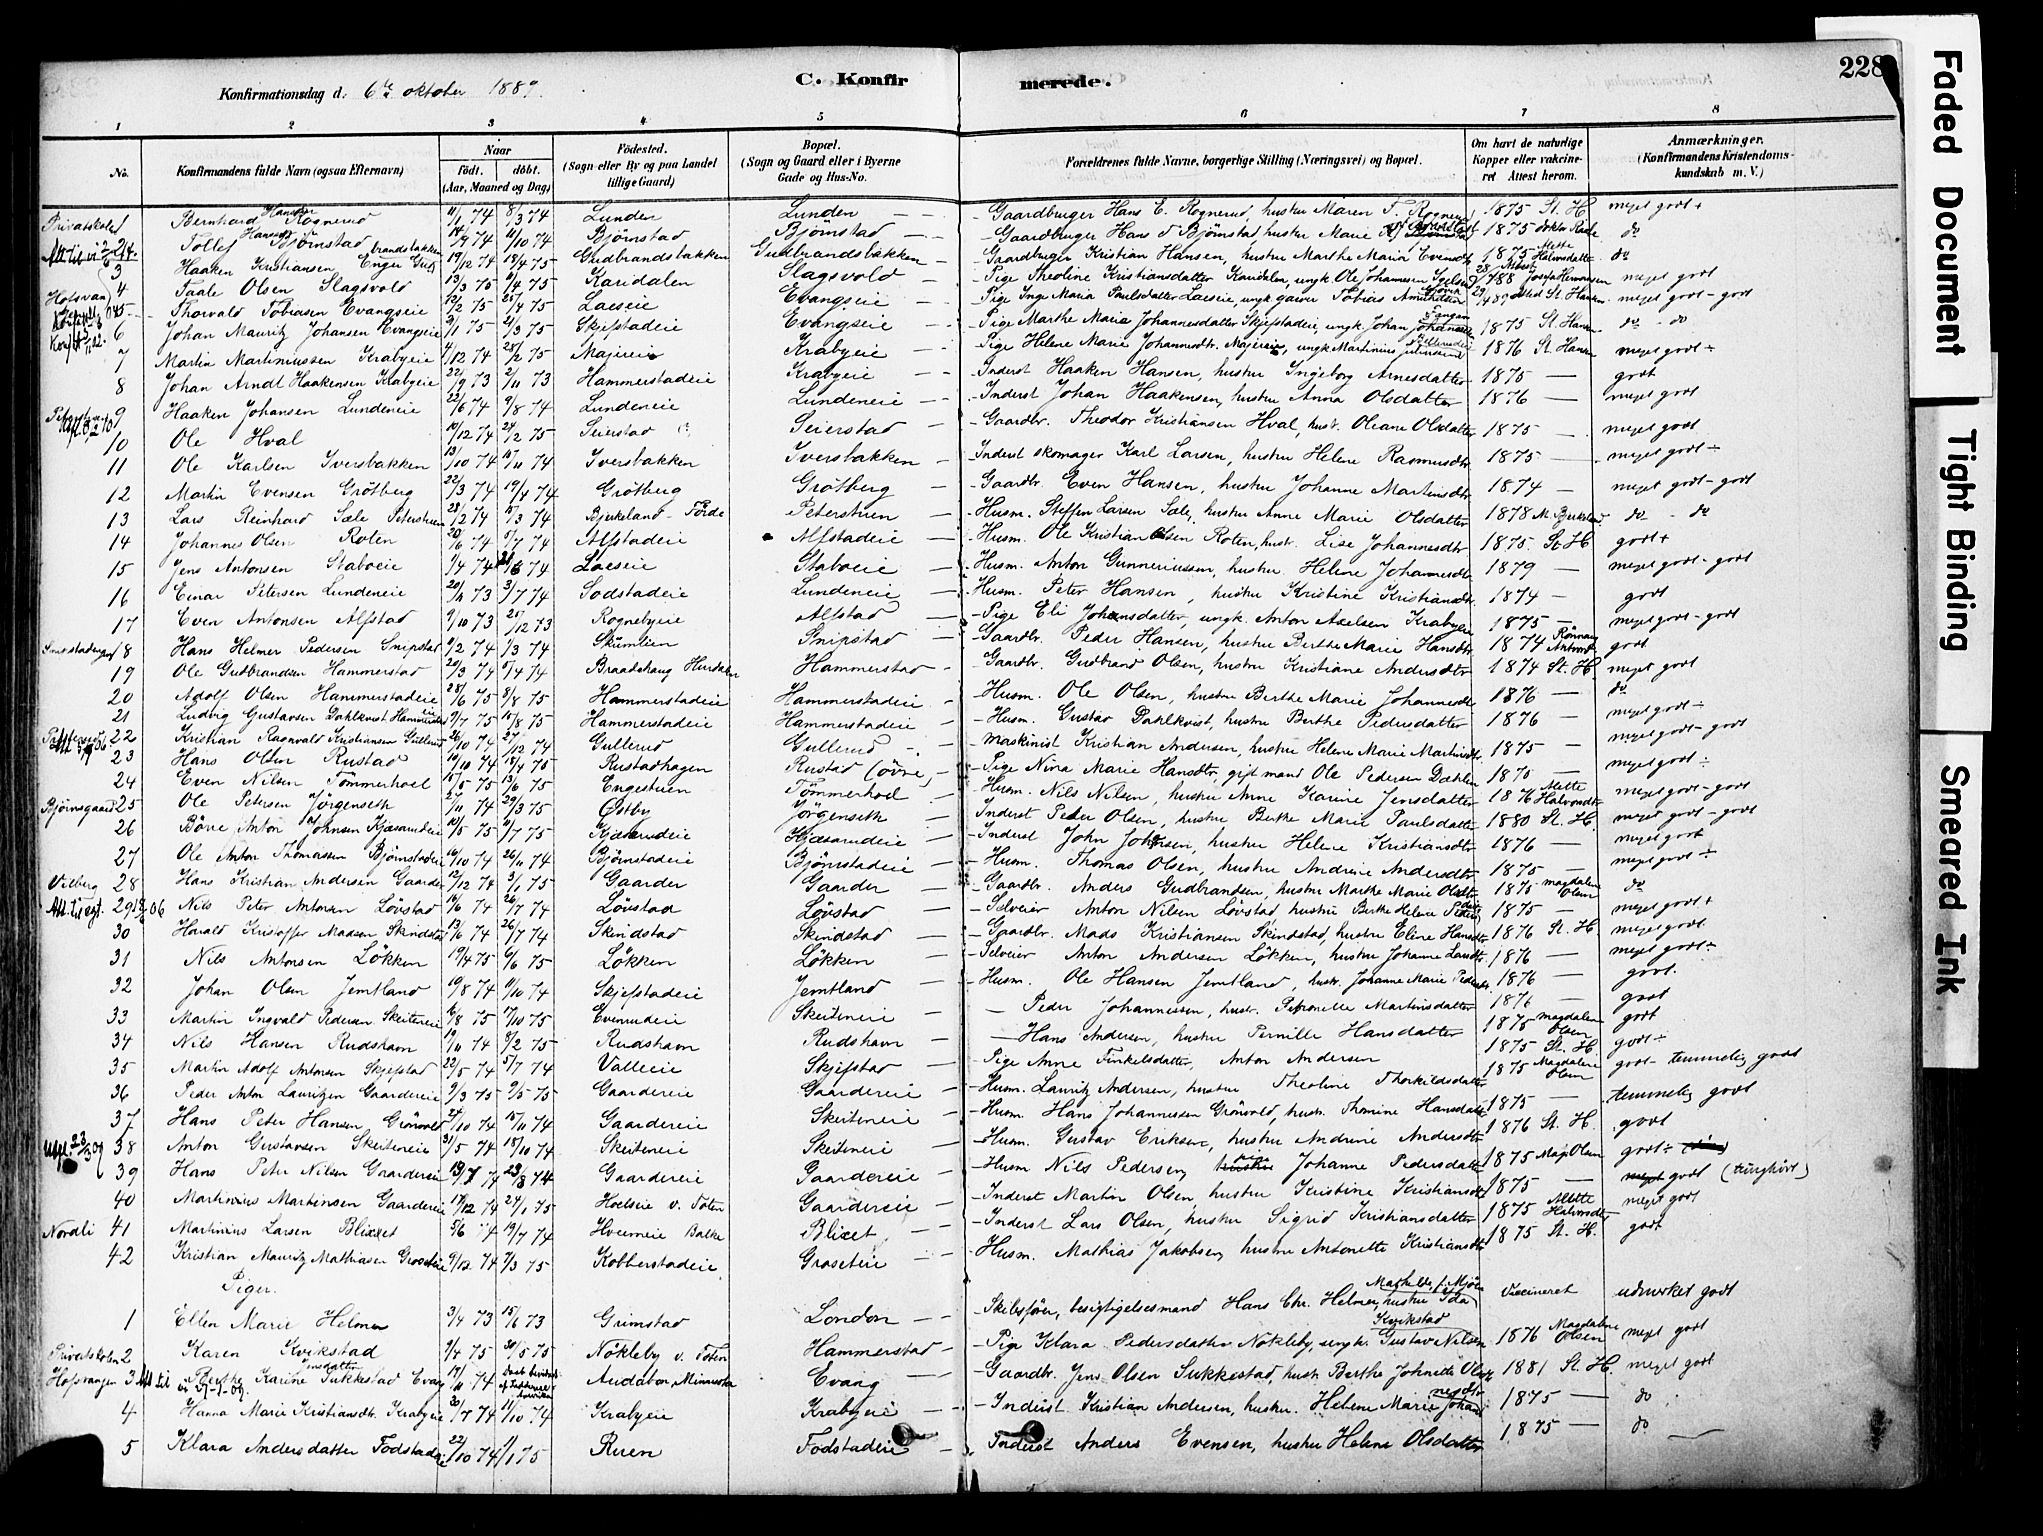 Konfirmationsdag d. 6te oktober 1889.
C. Konfirmerede.
228
1 2 3 4 5 6 7 8
No.
Konfirmandens fulde Navn (ogsaa Efternavn)
Naar
født. døbt.
(Aar, Maaned og Dag)
Fødested.
(Sogn eller By og paa Landet
tillige Gaard)
Bopæl.
(Sogn og Gaard eller i Byerne
Gade og Hus-No.
Forældrenes fulde Navne, borgerlige Stilling (Næringsvei) og Bopæl.
Om havt de naturlige
Kopper eller vakcine-
ret Attest herom.
Anmærkninger.
(Konfirmandens Kristendoms-
kundskab m. V.)
Privatskole 1 Bernhard Hansen Rognerud 74 8/3 74 Lunden Lunden Gaardbruger Hans E. Rognerud, hustru Maren 1875 St. H. meget godt +
2 Tollef Hansen Bjørnstad 74 74 Bjørnstad Bjørnstad Gaardbruger Hans Bjørnstad, hustru Marie 1875 do
3 Haaken Kristiansen Enger 19/12 74 18/4 75 Gudbrandsbakken Gudbrandsbakken Gaardbruger Kristian Hansen, hustru Marthe Maria 1875 do
4 Taale Olsen Slagsvold 13/3 75 75 Karidalen Slagsvold Pige Theoline Kristiansdatter Karidalen, ungk. Ole Johannesen meget godt
5 Thorvald Tobiasen Evangseie 12/2 75 25/4 75 Laeseie Evangseie Pige Inge Maria Paulsdatter Laeseie, ungk. Tobias meget godt - godt
6 Johan Mauritz Johansen Evangseie 75 2/3 75 Skjefstadeie Evangseie Pige Marthe Maria Johannesdatter Skjefstadeie, ungk. Johan Johansen 1875 St. Hansen do - do
7 Martin Martiniussen Krabyeie 74 75 Majereie Krabyeie Pige Helene Marie Johannesdtr. Majereie, ungk. Martinius 1876 St. Hansen meget godt ÷
8 Johan Arndt Haakensen Krabyeie 22/9 73 2/11 73 Hammerstadeie Krabyeie Inderst Haaken Hansen, hustru Ingeborg Arnesdatter 1875 — godt
9 Haaken Johansen Lundeneie 22/6 74 9/8 74 Lundeneie Lundeneie Inderst Johan Haakensen, hustru Anna Olsdatter 1876 — meget godt
10 Ole Hval 19/12 74 24/2 75 Seierstad Seierstad Gaardbr. Theodor Kristiansen Hval, hust. Oleane Olsdatter 1875 — meget godt
11 Ole Karlsen Iversbakken 13/10 74 74 Iversbakken Iversbakken Inderst skomager Karl Larsen, hustru Helene Rasmusdtr 1875 — meget godt ÷
12 Martin Evensen Grøtberg 22/3 74 19/4 74 Grøtberg Grøtberg Gaardbr. Even Hansen, hustru Johanne Martinsdtr 1874 — meget godt - godt
13 Lars Reinhard Sæle Peterstuen 28/2 74 15/3 74 Bjerkeland - Førde Peterstuen Husm. Steffen Larsen Sæle, hustru Anne Marie Olsdatter 1878 do - do
14 Johannes Olsen Roten 20/6 74 5/7 74 Alfstadeie Alfstadeie Husm. Ole Kristian Olsen Roten, hust. Lise Johannesdtr 1875 St. H godt +
15 Jens Antonsen Staboeie 74 74 Laeseie Staboeie Husm. Anton Gunneriussen, hustru Helene Johannesdtr 1879 — meget godt - godt
16 Einar Petersen Lundeneie 73 3/7 74 Sodstadeie Lundeneie Husm. Peter Hansen, hustru Kristine Kristiansdtr 1874 — godt
17 Even Antonsen Alfstad 9/10 73 25/12 73 Rognebyeie Alfstad Pige Eli Johansdatter, ungk. Anton Axelsen Krabyeie 1875 — meget godt - godt
18 Hans Helmer Pedersen Snipstad 74 1/3 74 Skumlien Snipstad Gaardbr. Peder Hansen, hustru Berthe Marie Hansdtr 1874 godt
19 Ole Gudbrandsen Hammerstad 20/3 74 74 Braadehaug Hurdalen Hammerstad Gaardbr. Gudbrand Olsen, hustru Kristiane Andersdtr 1874 St. H meget godt
20 Adolf Olsen Hammerstadeie 28/6 75 8/8 75 Hammerstadeie Hammerstadeie Husm. Ole Olsen, hustru Berthe Marie Johannesdtr 1876 — do
21 Ludvig Gustavsen Dahlkvist Hammerstadeie 9/7 75 15/8 75 Hammerstadeie Hammerstadeie Husm. Gustav Dahlkvist, hustru Berthe Pedersdatter 1876 — meget godt ÷
22 Kristian Ragnvald Kristiansen Gullerud 26/10 74 27/12 74 Gullerud Gullerud Maskinist Kristian Andersen, hustru Helene Marie Martinsdtr 1875 — meget godt - godt
23 Hans Olsen Rustad 19/10 74 18/4 75 Rustadhagen Rustad (øvre) Pige Nina Marie Hansdtr, gift mand Ole Pedersen Dæhlen 1875 — meget godt ÷
24 Even Nilsen Tømmerhoel 15/5 75 13/6 75 Engestuen Tømmerhoel Husm. Nils Nilsen, hustru Anne Karine Jensdatter 1876 meget godt - godt
Bjørnsgaard 25 Ole Petersen Jørgenseth 27/11 74 29/3 75 Østby Jørgenseth Inderst Peder Olsen, hustru Berthe Marie Paulsdatter 1880 St. H. meget godt - godt
26 Børre Anton Johnsen Kjæsarudeie 19/5 75 75 Kjæsarudeie Kjæsarudeie Inderst John Johnsen, hustru Helene Kristiansdtr 1876 — meget godt
27 Ole Anton Thomassen Bjørnstadeie 16/10 74 26/11 74 Bjørnstadeie Bjørnstadeie Husm. Thomas Olsen, hustru Andrine Andersdtr 1875 — meget godt ÷
Vilberg 28 Hans Kristian Andersen Gaarder 12/12 74 3/1 75 Gaarder Gaarder Gaardbr. Anders Gudbrandsen, hustru Marthe Marie Olsdtr 1875 Magdalene Olsen do
29 Nils Peter Antonsen Løvstad 74 26/7 74 Løvstad Løvstad Selveier Anton Nilsen Løvstad, hustru Berthe Helene Pedersdtr 1875 — meget godt +
30 Harald Kristoffer Madsen Skindstad 13/6 74 26/7 74 Skindstad Skindstad Gaardbr. Mads Kristiansen Skindstad, hustru Eline Hansdtr 1876 St. H. meget godt
31 Nils Antonsen Løkken 19/4 75 6/6 75 Løkken Løkken Selveier Anton Andersen Løkken, hustru Johanne Larsdtr 1876 — meget godt ÷
32 Johan Olsen Jemtland 19/8 74 74 Skjefstadeie Jemtland Husm. Ole Hansen Jemtland, hust. Johanne Marie Pedersdtr 1876 — godt
33 Martin Ingvald Pedersen Skeitereie 75 75 Evenrudeie Skeitereie — Peder Johannessen, hust. Petronelle Martinsdatter 1876 — godt
34 Nils Hansen Rudshavn 74 75 Rudshavn Rudshavn — Hans Andersen, hustru Pernille Hansdatter 1875 Magdalene Olsen godt
35 Martin Adolf Antonsen Skjefstad 22/5 74 5/7 74 Valleeie Skjefstad Pige Anne Finkelsdatter, Anton Andersen 1875 St. H. godt ÷
36 Peder Anton Lauritzen Gaardereie 9/3 75 9/5 75 Gaardereie Gaardereie Husm. Lauritz Andersen, hustru Theoline Thorkildsdatter 1875 Magdalene Olsen godt - temmelig godt
37 Hans Peter Hansen Grønvold 24/10 74 15/11 74 Gaardereie Skeitereie Husm Hans Johannessen Grønvold, hust. Thorine Hansdatter 1875 — temmelig godt
38 Anton Gustavsen Skeitereie 31/5 74 18/10 74 Skeitereie Skeitereie Husm. Gustav Eriksen, hustru Andrine Andersdtr 1876 St. H. godt
39 Hans Peter Nilsen Gaardereie 74 23/8 74 Gaardereie Gaardereie Husm Nils Pedersen, Johanne Pedersdatter 1875 Olsen godt ÷
40 Martinius Martinsen Gaardereie 17/12 74 24/1 75 Hoelseie v. Toten Gaardereie Inderst Martin Olsen, hustru Kristine Kristiansdtr 1875 — meget godt (tunghørt)
Nordli 41 Martinius Larsen Blixet 5/6 74 19/7 74 Hveemeie Balke Blixet Inderst Lars Olsen, hustru Sigrid Kristiansdatter 1875 meget godt
42 Kristian Mauritz Mathiasen Groseteie 9/12 74 7/3 75 Kobberstadeie Groseteie Husm. Mathias Jakobsen, hustru Antonette Kristiansdtr 1875 St. H. godt
Piger.
1 Ellen Marie Helmer 3/4 73 15/6 73 Grimstad London Skibsfører, besigtigelsesmand Hans Chr. Helmer, hustru Ida Mathilde f. Mjøen Vaccineret udmerket godt
Privatskolen 2 Karen Kvikstad 4/4 75 30/5 75 Nøkleby v. Toten Hammerstad Pige Klara Pedersdatter Nøkleby, ungk. Gustav Nilsen Kvikstad 1876 Magdalene Olsen meget godt
Hofsvangen 3 Berthe Karine Jensdatter Sukkestad Evang 74 Audubon, Minnesota Evang Gaardbr. Jens Olsen Sukkestad, hust. Berthe Johnette Olsdtr 1881 St. H. meget godt
4 Hanna Marie Kristiansdtr. Krabyeie 20/7 74 11/10 74 Krabyeie Krabyeie Inderst Kristian Andersen, hustru. Helene Marie Johannesdtr 1875 — do
5 Klara Andersdatter Fodstadeie 22/10 74 75 Ruen Fodstadeie Inderst Anders Evensen, hustru Helene Olsdatter 1875 — do
Faded Document
Tight Binding
Smeared Ink